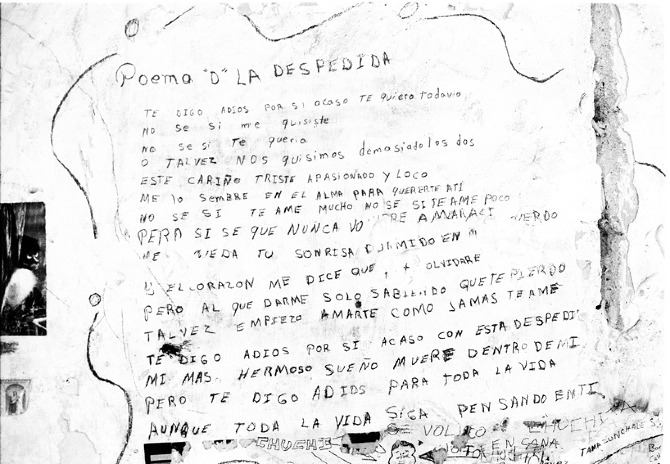 Poema "D" LA DESPEDIDA
TE DIGO ADIOS POR SI acaso TE quiero Todavia
NO se si me quisiste
NO se si Te queria
O TALVEZ NOS quisimos demasiado los dos
ESTE CARIÑO TRISTE APASIONADO Y LOCO
ME lo SEMBRE EN EL ALMA PARA QUERERTE ATI
NO SE SI TE AME MUCHO NO SE SI TE AME POCO
PERO SI SE QUE NUNCA
ME TU SONRISA EN
Y EL CORAZON ME DICE QUE OLVIDARE
PERO AL QUEDARME SOLO SABIENDO QUE TE PIERDO
TALVEZ EMPIEZO AMARTE COMO JAMAS TE AME
TE DIGO ADIOS POR SI ACASO CON ESTA DESPEDI
MI MAS HERMOSO SUEÑO MUERE DENTRO DE MI
PERO TE DIGO ADIOS PARA TODA LA VIDA
AUNQUE TODA LA VIDA SIGA PENSANDO EN TI